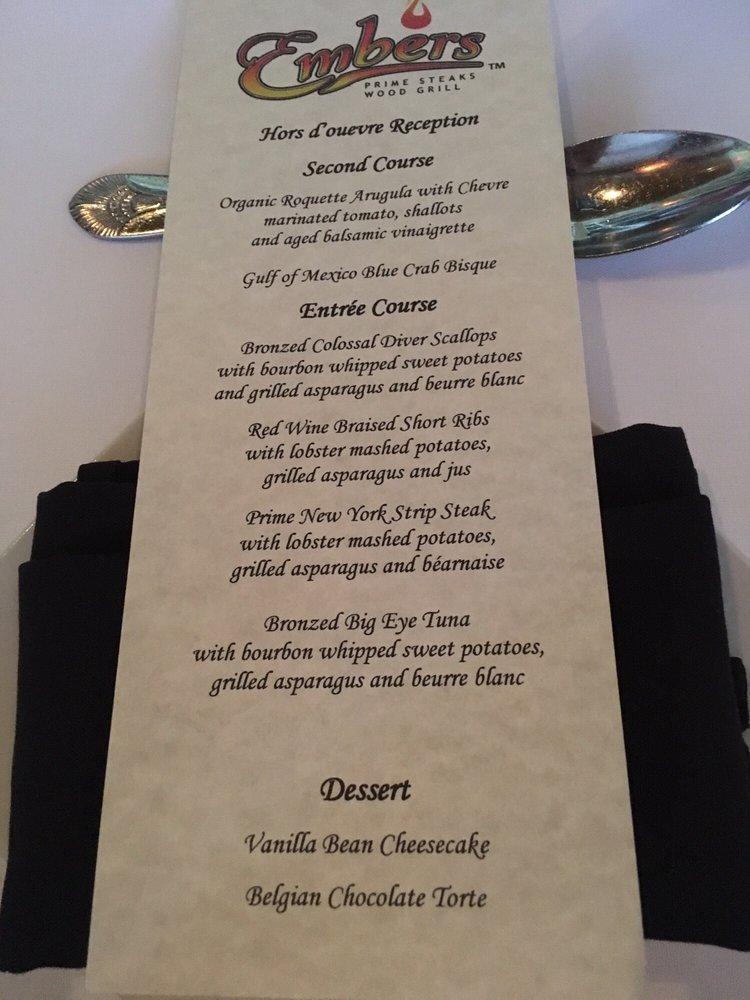 Embers™
PRIME STEAKS
WOOD GRILL
Hors d'ouevre Reception
Second Course
Organic Roquette Arugula with Chevre
marinated tomato, shallots
and aged balsamic vinaigrette
Gulf of Mexico Blue Crab Bisque
Entrée Course
Bronzed Colossal Diver Scallops
with bourbon whipped sweet potatoes
and grilled asparagus and beurre blanc
Red Wine Braised Short Ribs
with lobster mashed potatoes,
grilled asparagus and jus
Prime New York Strip Steak
with lobster mashed potatoes,
grilled asparagus and béarnaise
Bronzed Big Eye Tuna
with bourbon whipped sweet potatoes,
grilled asparagus and beurre blanc
Dessert
Vanilla Bean Cheesecake
Belgian Chocolate Torte